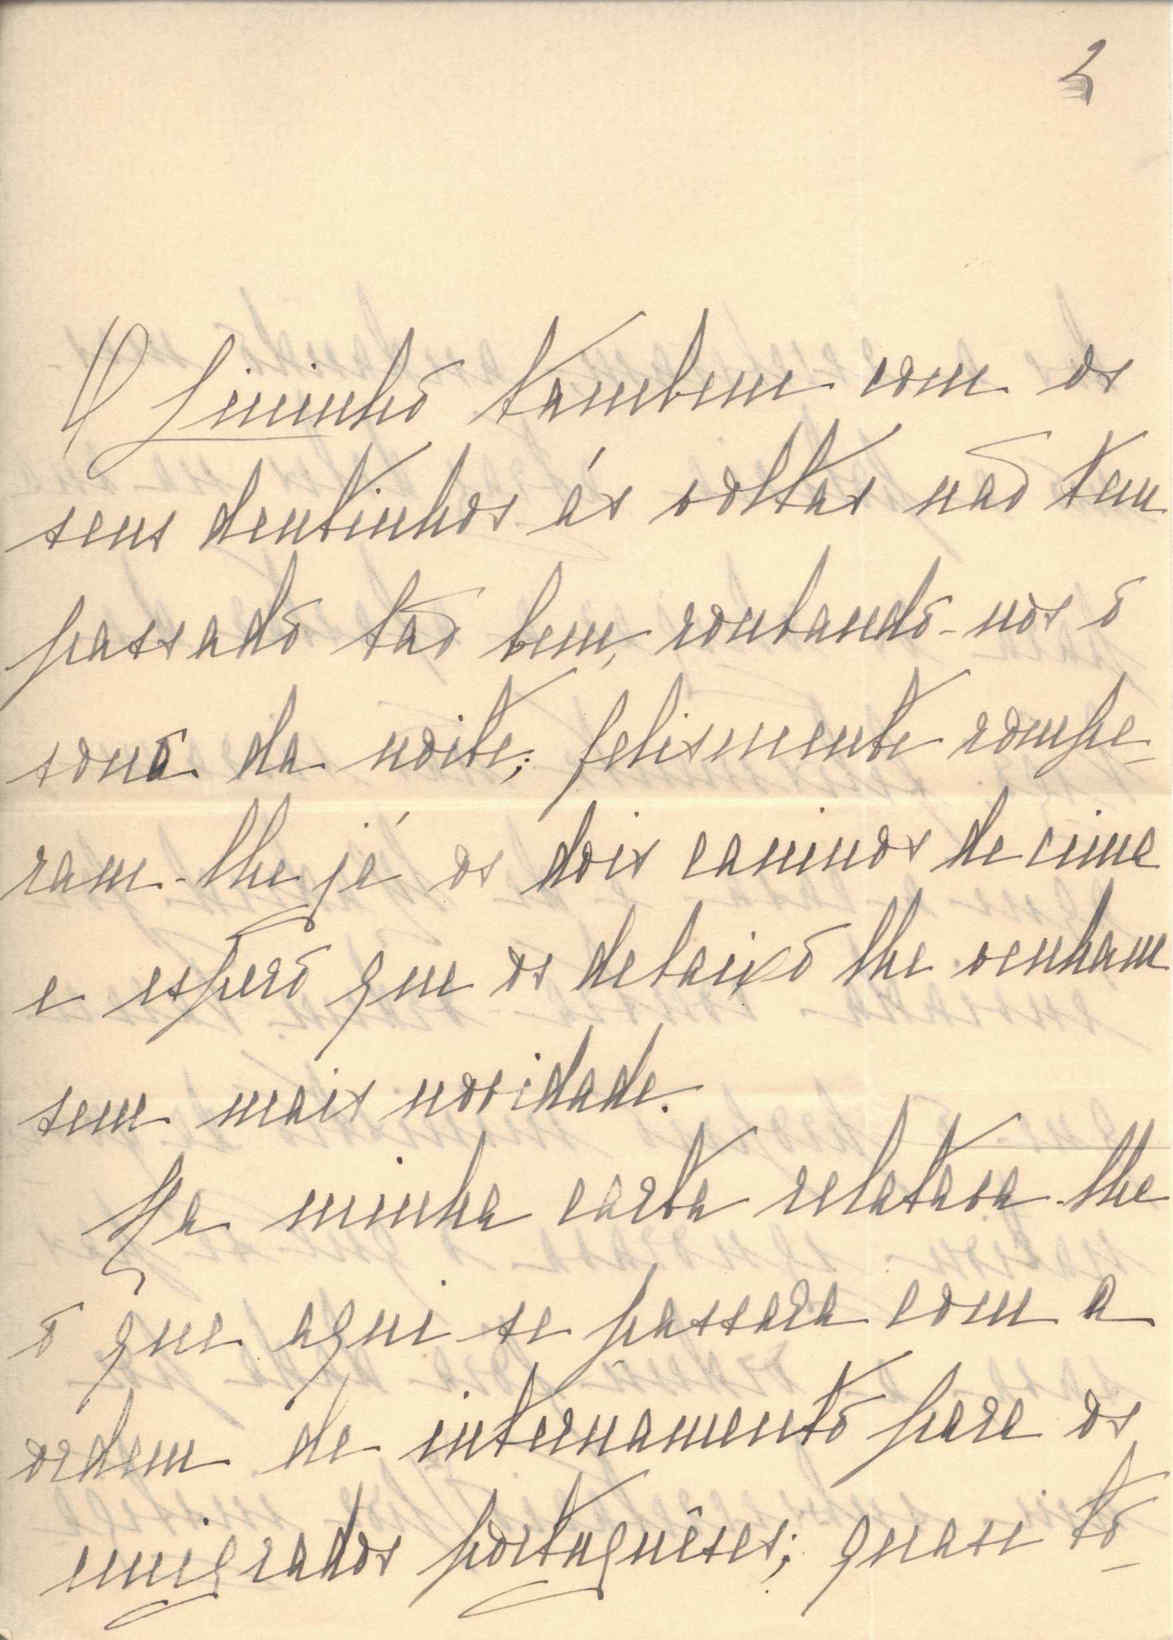 2
O Lininhó tambem com os
seus dentinhos ás voltas não tem
passado tão bem, roubando-nos o
sono da noite; felismente rompe-
ram-lhe já os dois caninos de cima
e espero que os debaixo lhe venham
sem mais novidade.
Na minha carta relatava-lhe
o que aqui se passara com a
ordem de internamento para os
emigrados portuguêses; quasi tô-